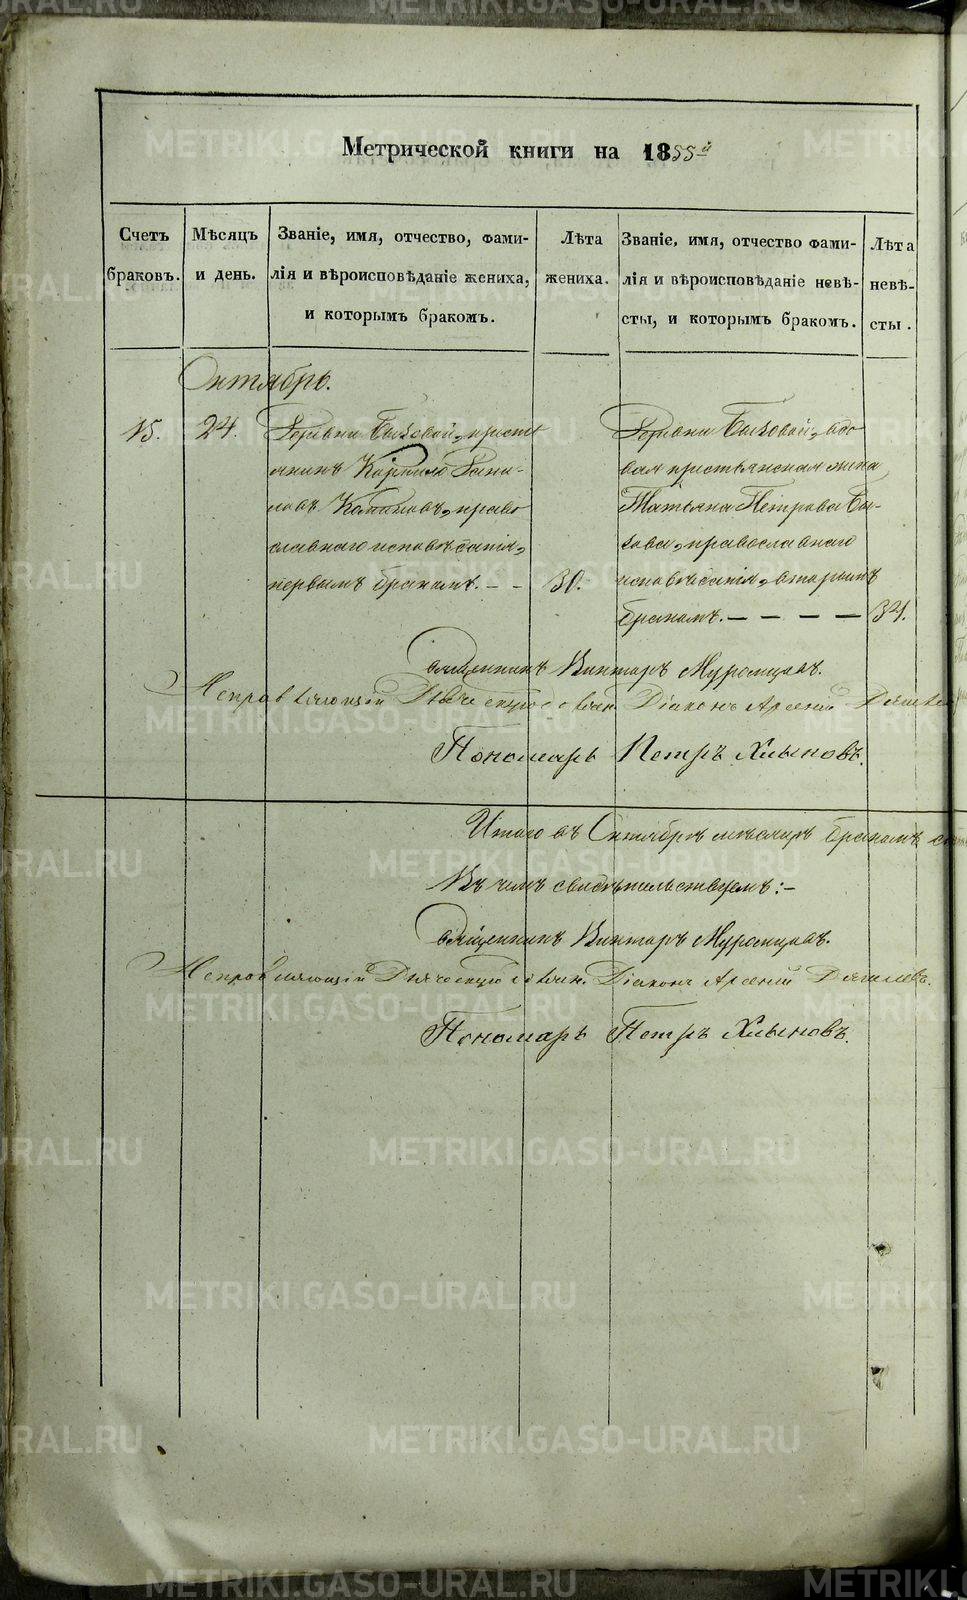 Метрической книги на 1855й
Счетъ браковъ.
Мѣсяцъ и день.
Званіе, имя, отчество, фами-
лія и вѣроисповѣданіе жениха,
и которымъ бракомъ.
Лѣта жениха.
Званіе, имя, отчество фами-
лія и вѣроисповѣданіе невѣ-
сты, и которымъ бракомъ.
Лѣта невѣ-
сты.
Октябрь.
15.
24.
Деревни Быковой, кресть
янинъ Кирилло Дани-
ловъ, право
славнаго исповѣданія,
первымъ бракомъ. – –
30.
Деревни Быковой, вдо
вая крестьянская жена
Татьяна Петрова Бы-
кова, православнаго
исповѣданія, вторымъ
бракомъ. – – – –
34.
Священникъ Викторъ Муромцовъ.
Исправляющій Діаконъ Арсеній
Пономарь Петръ Хлыновъ.
Итого въ Октябрѣ мѣсяцѣ бракомъ
Въ чемъ свидѣтельствуемъ:–
Священникъ Викторъ Муромцовъ.
Исправляющій Діаконъ Арсеній
Пономарь Петръ Хлыновъ.
METRIKI.GASO-URAL.RU